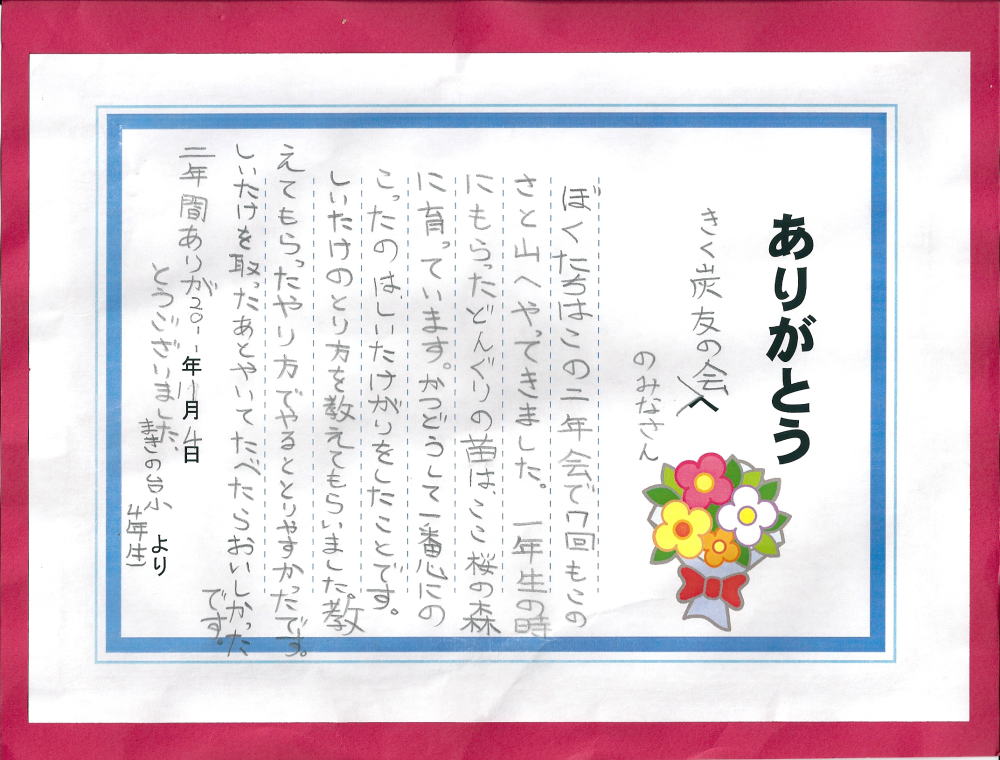 ありがとう
きく炭友の会へ
のみなさん
ぼくたちはこの二年会で7回もこの
さと山へやってきました。一年生の時
にもらったどんぐりの苗は、ここ桜の森
に育っています。かつどうして一番心にの
こったのは、しいたけがりをしたことです。
しいたけのとり方を教えてもらいました。教
えてもらったやり方でやるととりやすかったです。
しいたけを取ったあとやいてたべたらおいしかった
です。
二年間ありが
とうございました、
年11月4日
まきの台小
4年生
より